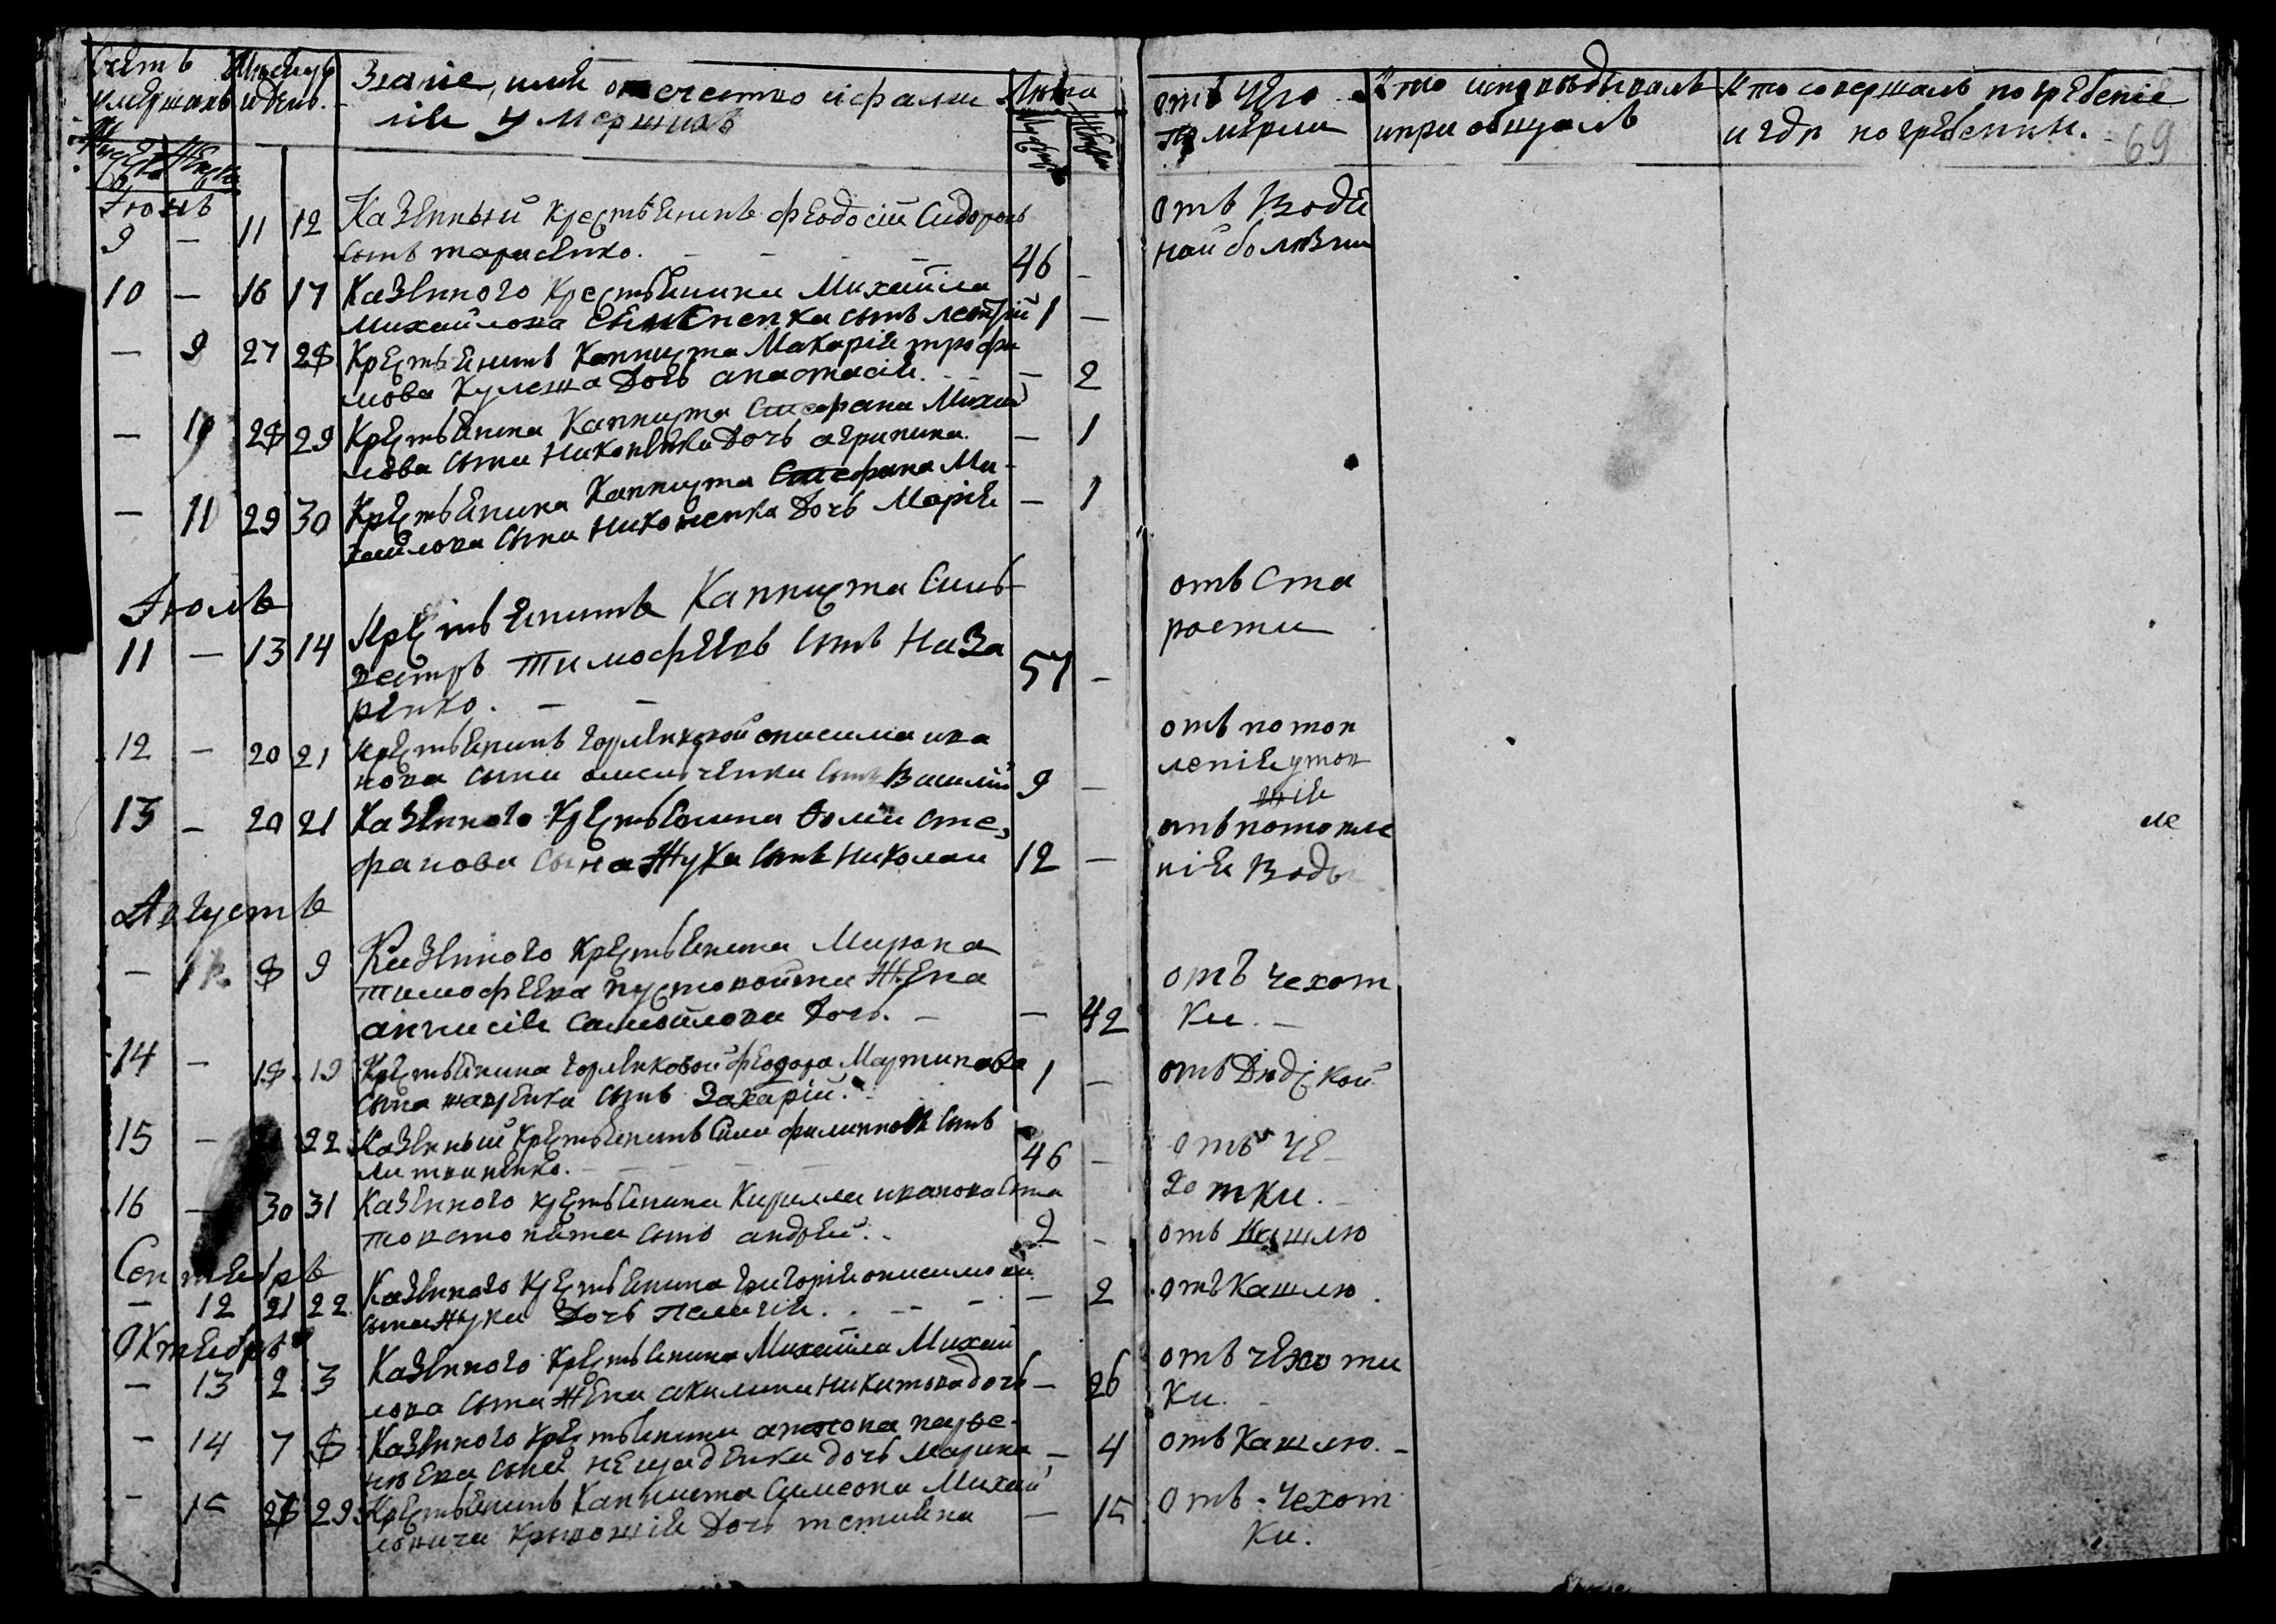 Счетъ умершихъ
Мѣсяцъ и день.
Званіе, имя отечество и фами
лія умершихъ
Лѣта
отъ чего
померли
Кто исповѣдывалъ
и приобщалъ
Кто совершалъ погребеніе
и гдѣ погребенны.
69
Іюнь
9 — 11 12 Казенный крестьянинъ Феодосій Сидоровъ
сынъ Тарасенко. 46 —
отъ Водя
ной болѣзни
10 — 16 17 Казенного крестьянина Михайла
Михайлова сынъ 1 —
— 9 27 28 Крестьянинъ Капписта Макарія Трофи
мова Кулеша дочь Анастасія. — 2
— 10 28 29 Крестьянина Капписта Стефана Михай
лова сына Никоненка дочь Агрипина. — 1
— 11 29 30 Крестьянина Капписта Стефана Ми-
хайлова сына Никоненка дочь Марія — 1
Іюль
11 — 13 14 Крестьянинъ Капписта Силь
вестръ Тимофѣевъ сынъ Наза
ренко. — — 57 —
отъ Ста
рости
12 — 20 21 Крестьянинъ Горленковой Онисима Ива
нова сына сынъ Василій 9 —
отъ потоп
ленія утоп
13 — 20 21 Казенного крестьянина Фомы Сте,
фанова сына Жука сынъ Николай 12 —
отъ потопле
нія Воды
Августъ
— 8 9 Казенного крестьянина Мирона
Тимофѣева Пустовойта жена
Анисія Самойлова дочь. — — 42
отъ чехот
ки. —
14 — 18 19 Крестьянина Горленковой Феодора Мартинова
сына сынъ Захарій. 1 —
отъ дѣдской
15 — 22 Казенный крестьянинъ Сила Филипповъ сынъ
Литвиненко. 46 —
отъ че
хотки.
16 — 30 31 Казенного крестьянина Кирилла Иванова сына
Товстопята сынъ Андрей. 2 —
отъ кашлю
Сентябрь
— 12 21 22 Казенного крестьянина Григорія Онисимова
сына Жука дочь Пелагія. — 2
отъ кашлю.
Октябрь
— 13 2 3 Казенного крестьянина Михайла Михай
лова сына жена Акилина Никитова дочь — 26
отъ чехот
ки.
— 14 7 8 Казенного крестьянина Антона
сына Нещаденка дочь Марина — 4
отъ кашлю. —
— 15 28 29 Крестьянинъ Капписта Симеона Михай
ловича дочь — 15
отъ чехот
ки.